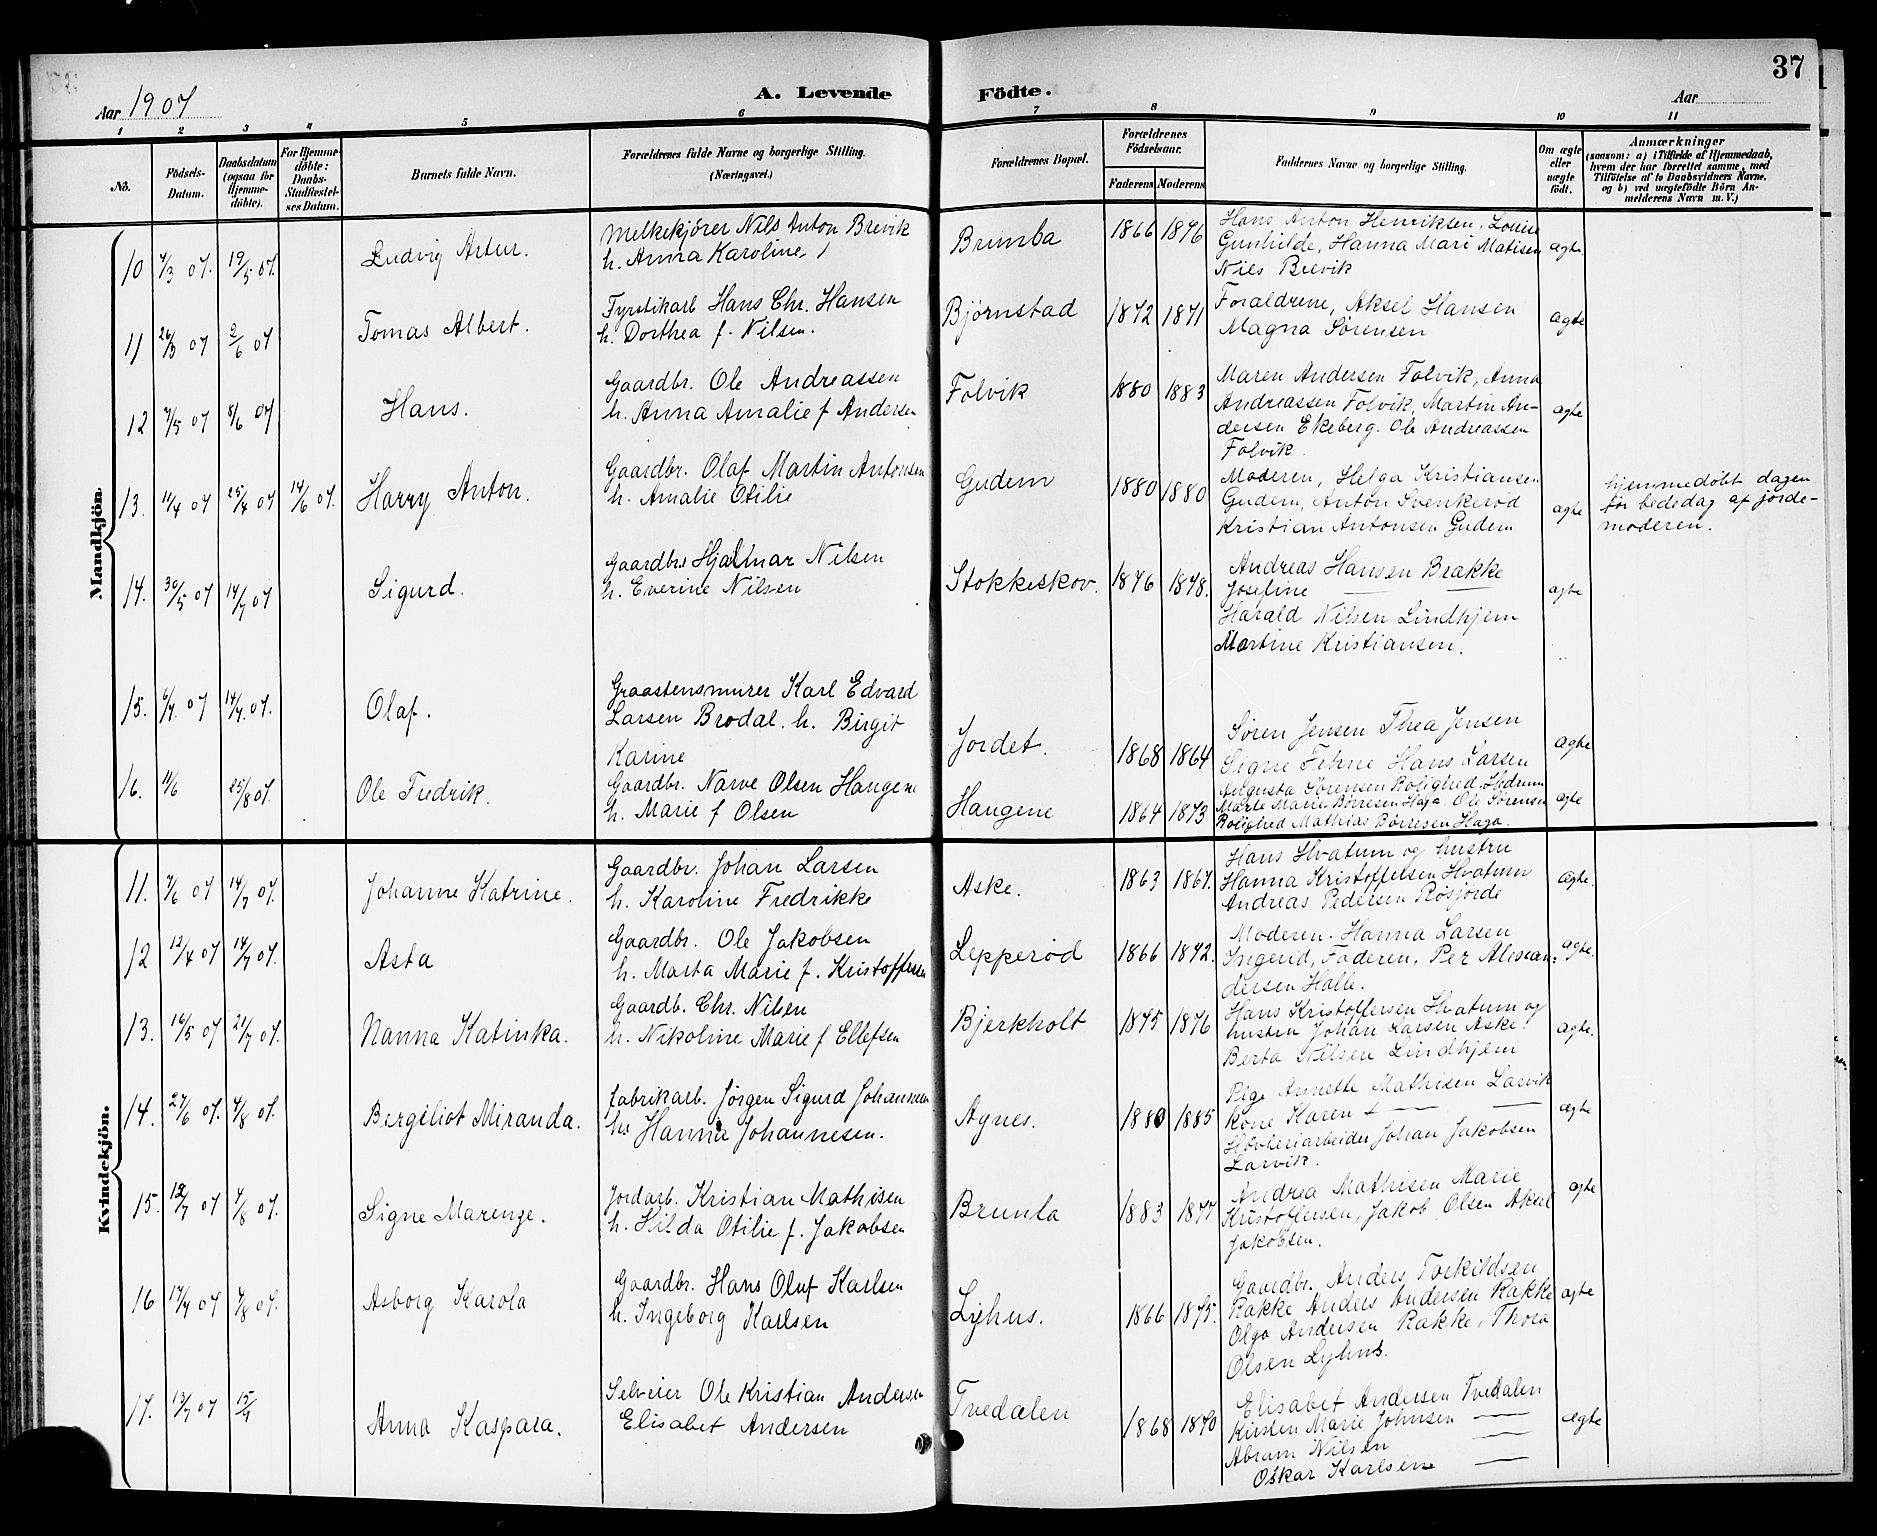 37
Aar 1907
A. Levende Födte.
Aar
1 2 3 4 5 6 7 8 9 10 11
No.
Födsels-Datum.
Daabsdatum (ogsaa for Hjemme-döbte).
For Hjemme-döbte: Daabs-Stadfæstel-ses Datum.
Barnets fulde Navn.
Forældrenes fulde Navne og borgerlige Stilling. (Næringsvei.)
Forældrenes Bopæl.
Forældrenes Födselsaar.
Faderens Moderens
Faddernes Navne og borgerlige Stilling.
Om ægte eller uægte födt.
Anmærkninger
(saasom: a) i Tilfælde af Hjemmedaab, hvem der har forrettet samme, med Tilföielse af to Daabsvidners Navne. og b) ved uægtefödte Börn An-melderens Navn m. V.)
Mandkjön.
10 7/3 07. 19/5 07. Ludvig Artur.
Melkekjører Nils Anton Brevik
h. Anna Karoline
Brunla 1866 1876
Hans Anton Henriksen, Louise
Gunhilde, Hanna Mari Matisen
Nils Brevik
ægte
11 26/3 07 2/6 07 Tomas Albert.
Fyrstikarb Hans Chr. Hansen
h. Dorthea f. Nilsen.
Bjørnstad 1872 1871
Forældrene, Aksel Hansen
Magna Sørensen
ægte
12 7/5 07 8/6 07 Hans.
Gaardbr. Ole Andreassen
h. Anna Amalie f Andersen
Folvik 1880 1883
Maren Andersen Folvik, Anna
Andreassen Folvik, Martin An-
dersen Ekeberg. Ole Andreassen
Folvik.
ægte
13. 11/4 07 25/4 07 14/6 07. Harry Anton.
Gaardbr. Olaf Martin Antonsen
h. Amalie Otilie
Gudem 1880 1880
Moderen, Helga Kristiansen
Gudem, Anton Svenkerød
Kristian Antonsen Gudem
ægte
hjemmedöbt dagen
før bededag af jorde-
moderen.
14. 30/5 07 14/7 07 Sigurd.
Gaardbr. Hjalmar Nilsen
h. Everine Nilsen
Stokkeskov. 1876 1878.
Andreas Hansen Brakke
Josefine — —
Harald Nilsen Lindhjem
Martine Kristiansen.
ægte
15. 6/7. 07 14/7. 07. Olaf.
Graastensmurer Karl Edvard
Larsen Brodal. h. Birgit
Karine
Jordet. 1868 1864
Søren Jensen Thea Jensen
Signe Tehne Hans Larsen
ægte
16. 11/6 25/8 07. Ole Fredrik.
Gaardbr. Narve Olsen Hangene
h. Marie f Olsen
Hangene 1864 1873
Augusta Sørensen Rolighed. Hedrum
Marte Marie Børresen Haga Ole Sørensen
Rolighed Mathias Børresen Haga.
ægte
Kvindekjön.
11. 7/6 07 14/7 07. Johanne Katrine.
Gaardbr. Johan Larsen
h. Karoline Fredrikke
Aske. 1863 1867.
Hans Hvatum og hustru
Hanna Kristoffelsen Hvatum
Andreas Pedersen Røsjorde
ægte.
12 12/4 07 14/7 07. Asta
Gaardbr. Ole Jakobsen
h. Marta Marie f. Kristoffersen
Lepperød 1866 1872.
Moderen. Hanna Larsen
Ingerid, Faderen, Per Alexan-
dersen Halle.
ægte.
13. 14/5 07 21/7 07. Nanna Katinka.
Gaardb. Chr. Nilsen
h. Nikoline Marie f Ellefsen
Bjerkholt 1875 1876
Hans Kristoffersen Hvatum og
hustru Johan Larsen Aske.
Berta Nilsen Lindhjem
ægte.
14. 27/6 07. 4/8 07. Bergéliot Miranda.
fabrikarb. Jörgen Sigurd Johannesen
h. Hanna Johannesen.
Agnes. 1880 1885
Pige Annette Mathisen Larvik
Kone Karen — —
Høvleriarbeider Johan Jakobsen
Larvik.
ægte
15. 12/7 07 4/8 07. Signe Marenze.
Jordarb. Kristian Mathisen
h. Hilda Otilie f. Jakobsen
Brunla 1883 1877
Andrea Mathisen Marie
Kristoffersen, Jakob Olsen Aksel
Jakobsen.
ægte
16 17/7 07 4/8 07. Asborg Karola
Gaardbr. Hans Oluf Karlsen
h. Ingeborg Karlsen
Lyhus. 1866 1875.
Gaardbr. Anders Torkildsen
Rakke Anders Andersen Rakke
Olga Andersen Rakke, Thora
Olsen Lyhus.
ægte
17. 13/7 07 15/9 Anna Kaspara.
Selveier Ole Kristian Andersen
Elisabet Andersen
Tvedalen 1868 1870
Elisabet Andersen Tvedalen
Kirsten Marie Johnsen —
Abram Nilsen —
Oskar Karlsen —
ægte